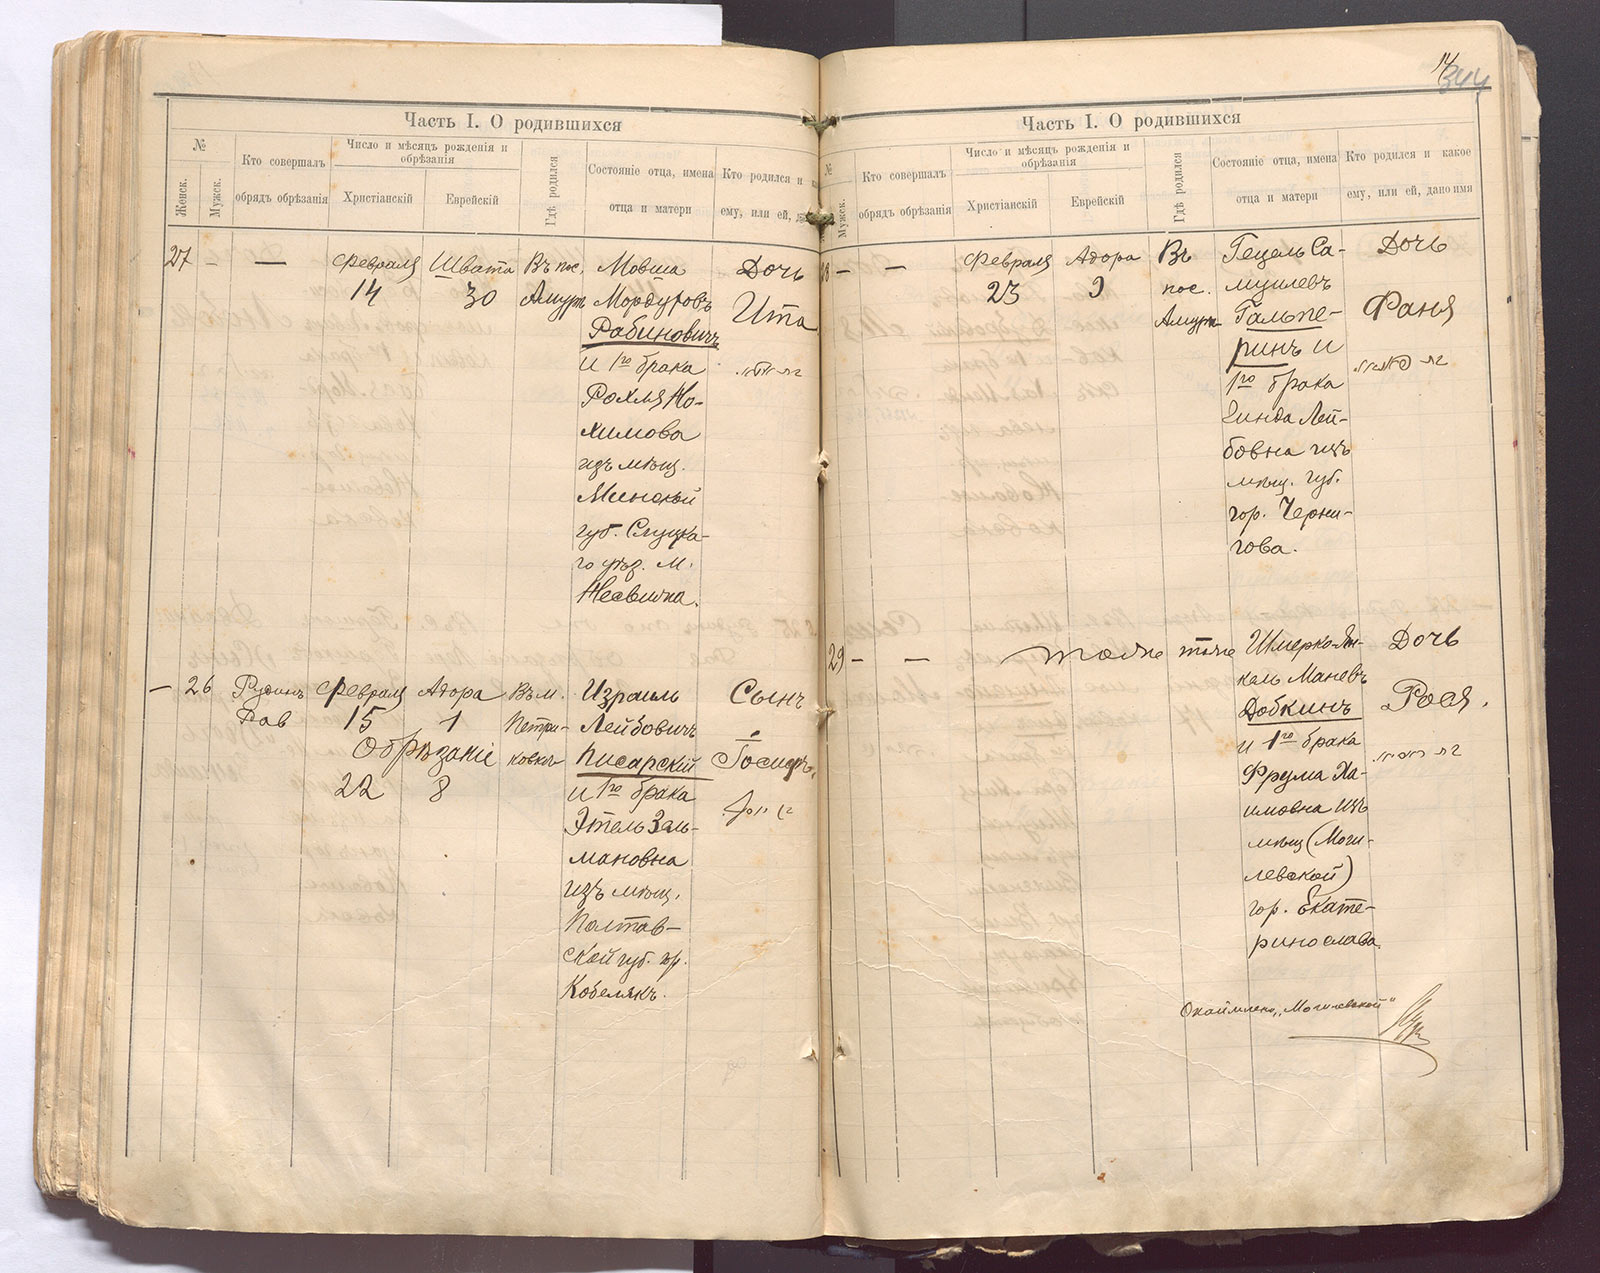 14
344
Часть I. О родившихся
№
Женск.
Мужск.
Кто совершалъ
обрядъ обрѣзанія
Число и мѣсяцъ рожденія и
обрѣзанія
Христіанскій
Еврейскій
Гдѣ родился
Состояніе отца, имена
отца и матери
Кто родился и
ему, или ей,
27 – —
Февраля
14
Швата
30
Въ пос.
Амур
Мовша
Мордуховъ
Рабиновичъ
и 1го брака
Рохля Но-
химова
изъ мѣщ.
Минской
губ. Слуцка-
го уѣз. м.
Несвижа.
Дочь
Ита
— 26
Рудинъ
Рав
Февраля
15
Адора
1
Обрѣзаніе
22
8
Въ м.
Петри-
ковкѣ
Израиль
Лейбовичъ
Писарскій
и 1го брака
Этель Заль-
мановна
изъ мѣщ.
Полтав-
ской губ. гор.
Кобелякъ.
Сынъ
Часть I. О родившихся
№
Мужск.
Кто совершалъ
обрядъ обрѣзанія
Число и мѣсяцъ рожденія и
обрѣзанія
Христіанскій
Еврейскій
Гдѣ родился
Состояніе отца, имена
отца и матери
Кто родился и какое
ему, или ей, дано имя
28 – –
Февраля
23
Адора
9
Въ
пос.
Амурѣ
Гецель Са-
муилевъ
Гальпе-
ринъ и
1го брака
Зинда Лей-
бовна изъ
мѣщ. губ.
гор. Черни-
гова.
Дочь
Фаня
29 – –
тоже
тоже
Шмерко-Ян-
кель Маневъ
Добкинъ
и 1го брака
Фрума Ха-
имовна изъ
мѣщ (Моги-
левской)
гор. Екате-
ринослава.
Дочь
Рося.
Окаймлено „Могилевской"